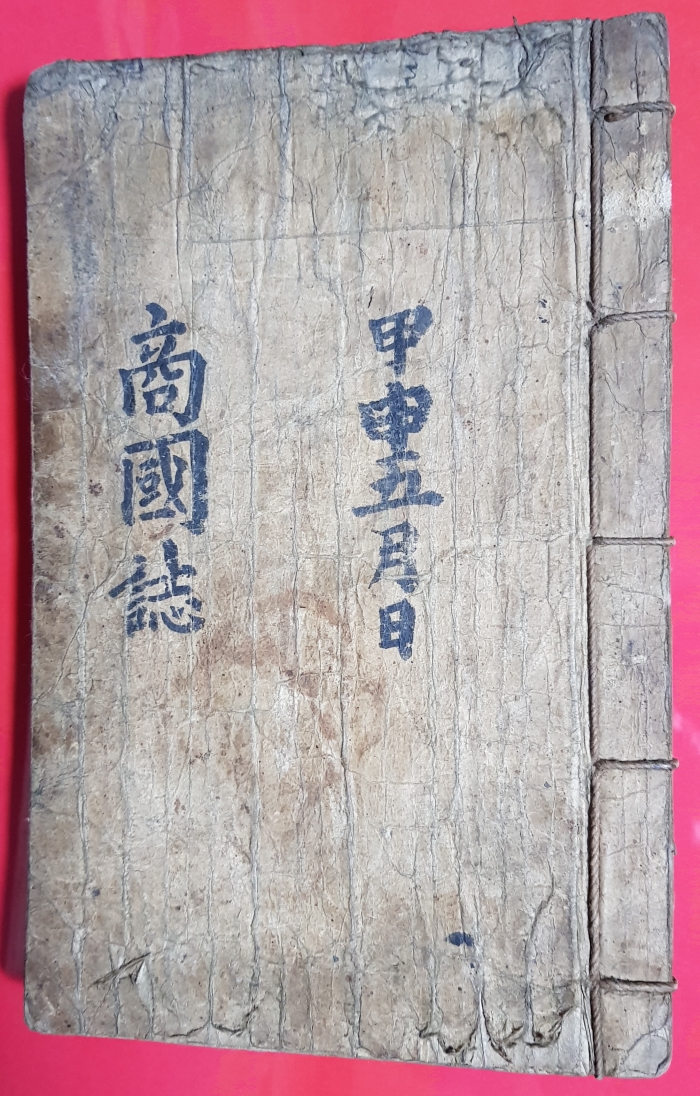 甲申五月日
商國誌